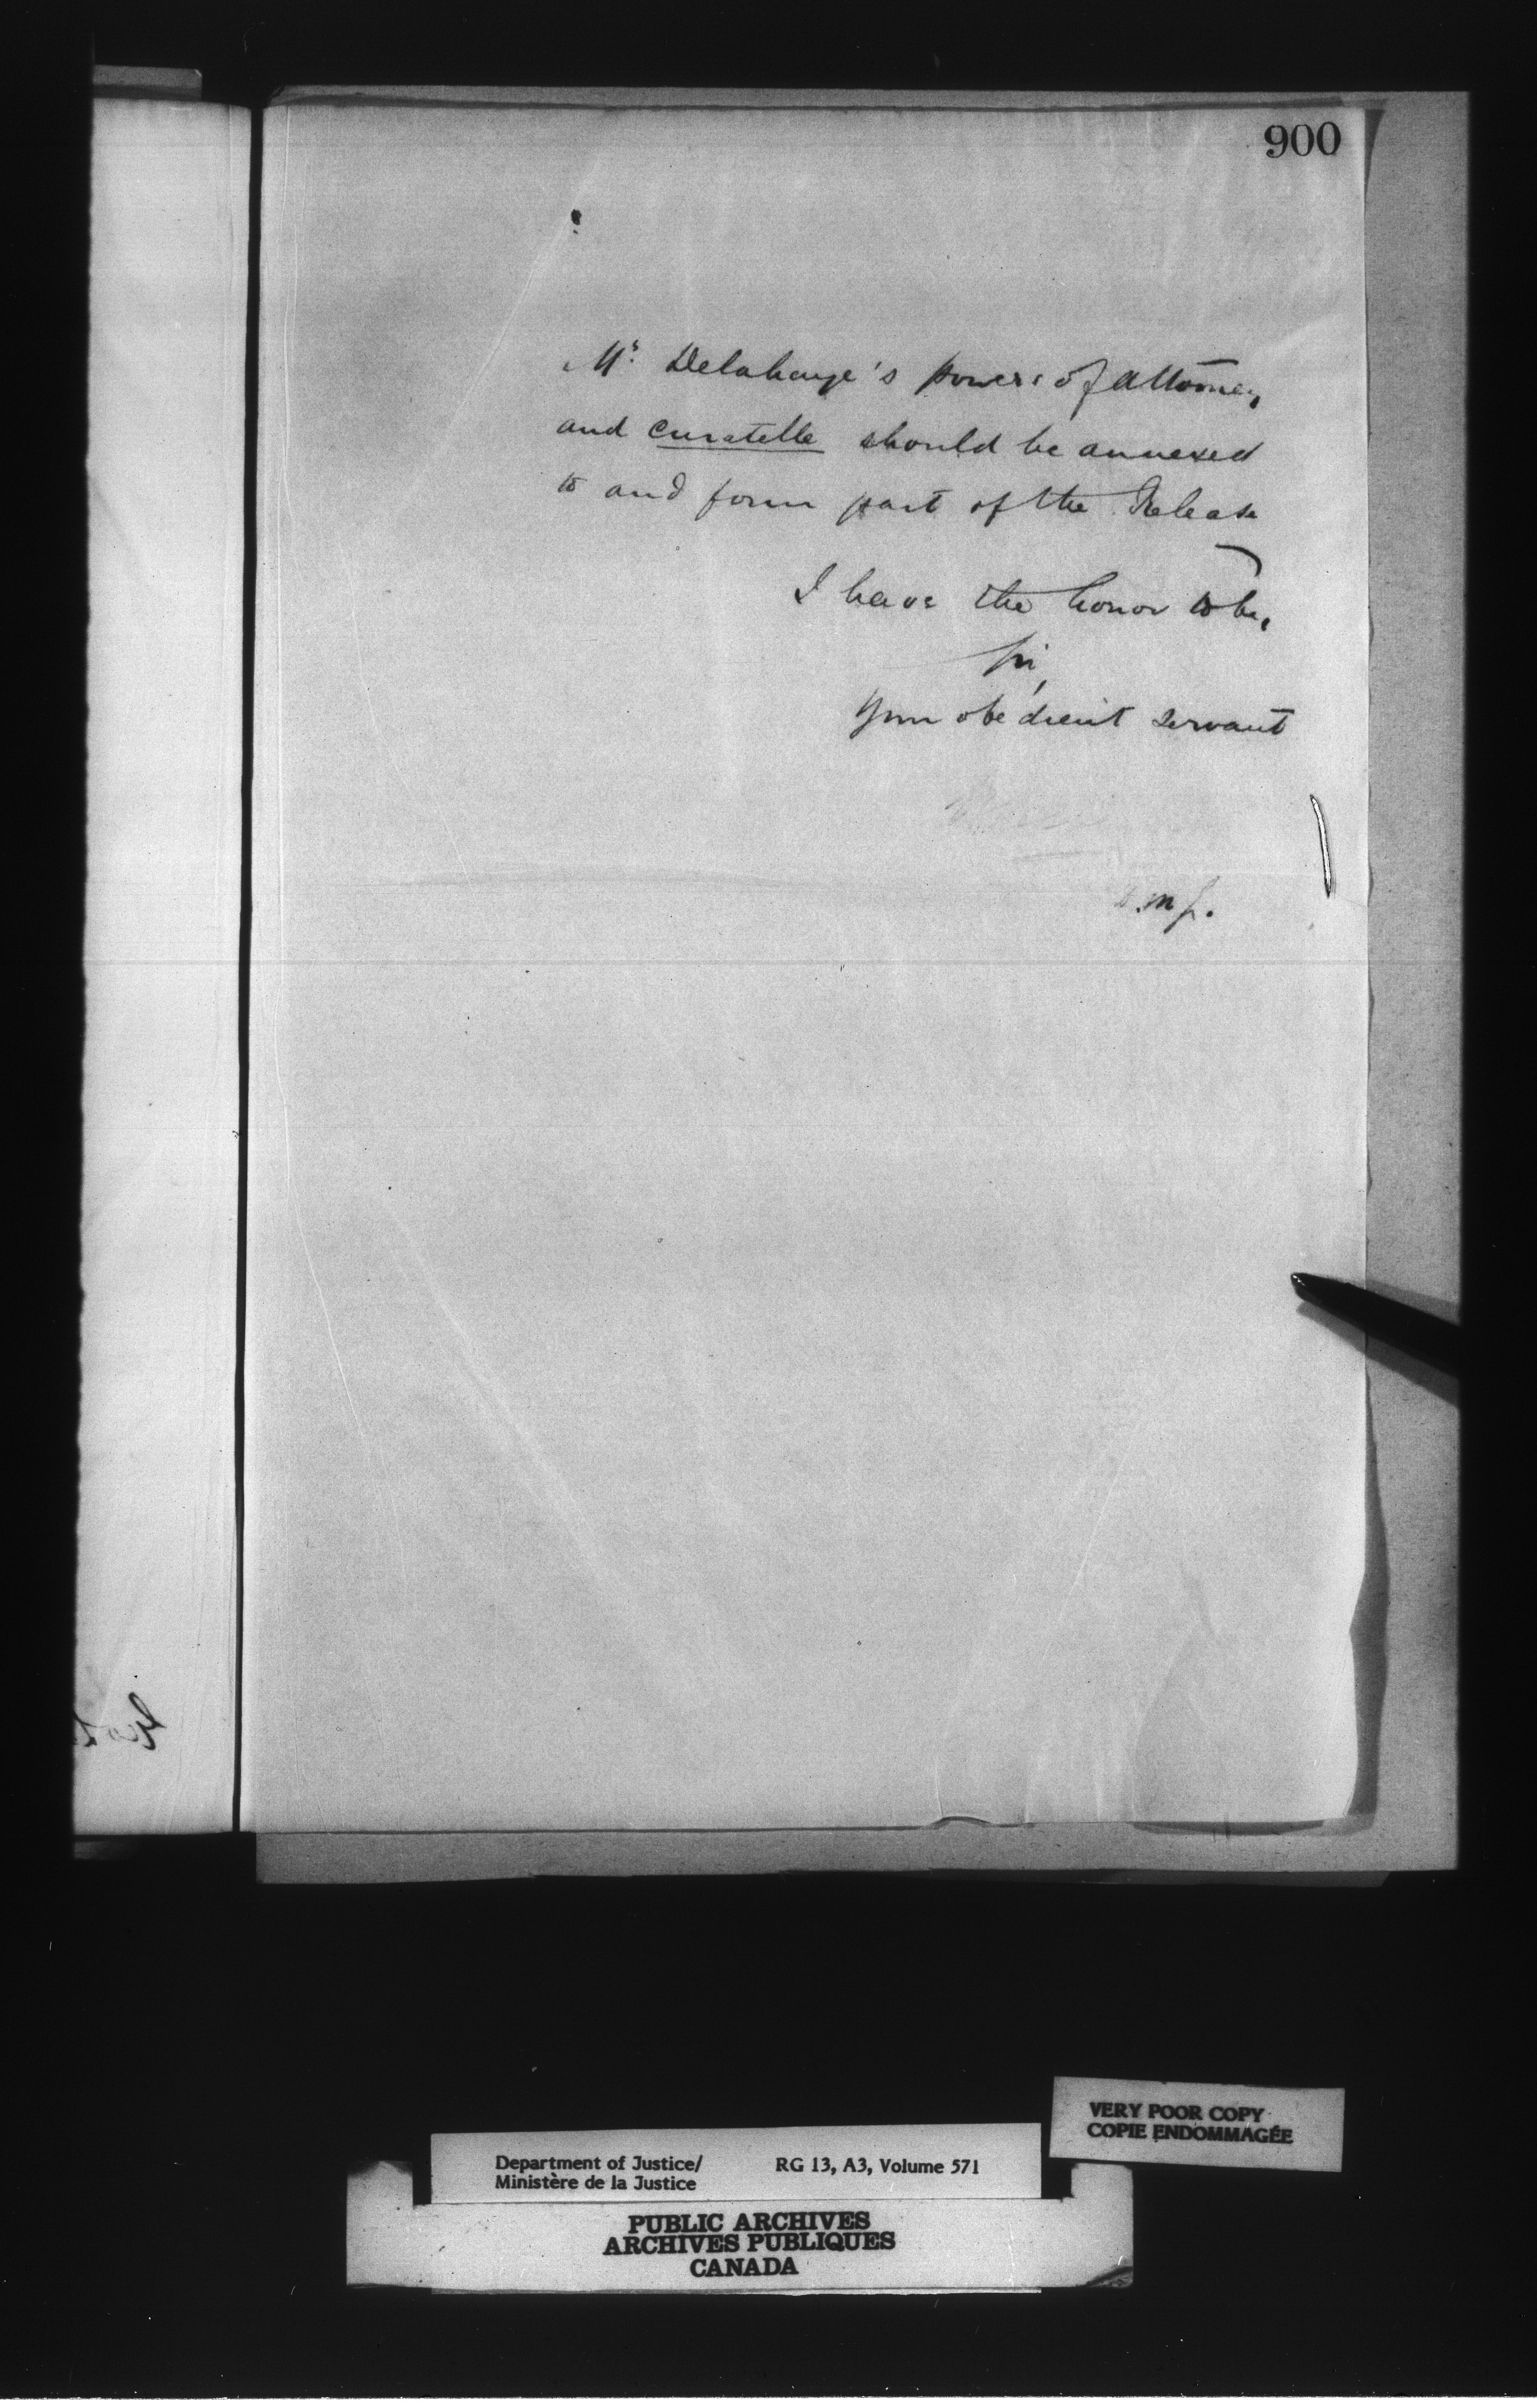 900
Mr. Delahaye's powers of Attorney
and curatelle should be annexed
to and form part of the Release
I have the honor to be,
Sir,
Your obedient servant
D.M.J.
VERY POOR COPY
COPIE ENDOMMAGÉE
Department of Justice/ RG 13, A3, Volume 571
Ministère de la Justice
PUBLIC ARCHIVES
ARCHIVES PUBLIQUES
CANADA